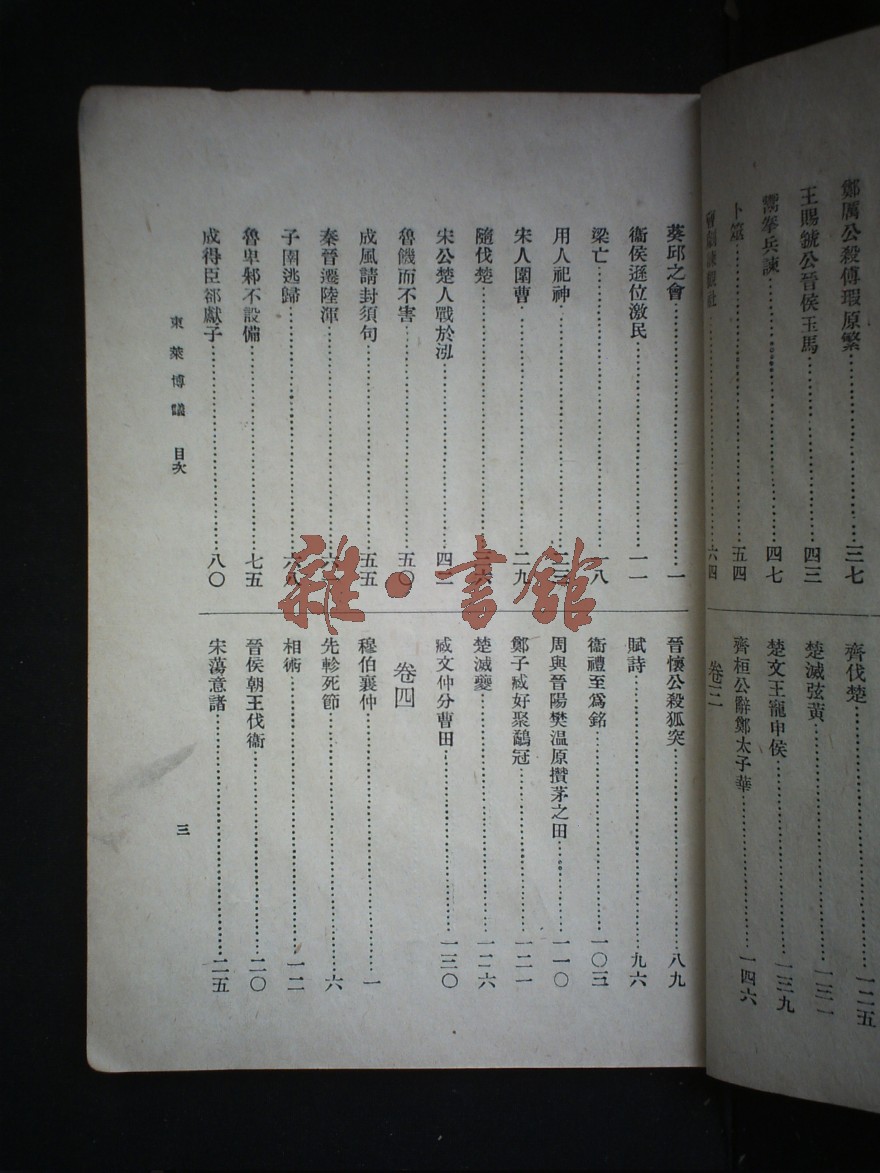 鄭厲公殺傅瑕原繁……三七
王賜虢公晉侯玉馬……四三
鬻拳兵諫……四七
卜筮……五四
……六四
齊伐楚……一二五
楚滅弦黃……一三一
楚文王寵申侯……一三九
齊桓公辭鄭太子華……一四六
卷三
葵邱之會……一
衞侯遜位激民……一一
梁亡……一八
用人祀神……二三
宋人圍曹……二九
隨伐楚……三六
宋公楚人戰於泓……四二
魯饑而不害……五〇
成風請封須句……五五
秦晉遷陸渾……
子圉逃歸……六八
魯卑邾不設備……七五
成得臣郤獻子……八〇
晉懷公殺狐突……八九
賦詩……九六
衞禮至爲銘……一〇三
周與晉陽樊温原攢茅之田……一一〇
鄭子臧好聚鷸冠……一二一
楚滅夔……一二六
臧文仲分曹田……一三〇
卷四
穆伯襄仲……一
先軫死節……六
相術……一二
晉侯朝王伐衞……二〇
宋蕩意諸……二五
東萊博議 目次
三
雜·書館